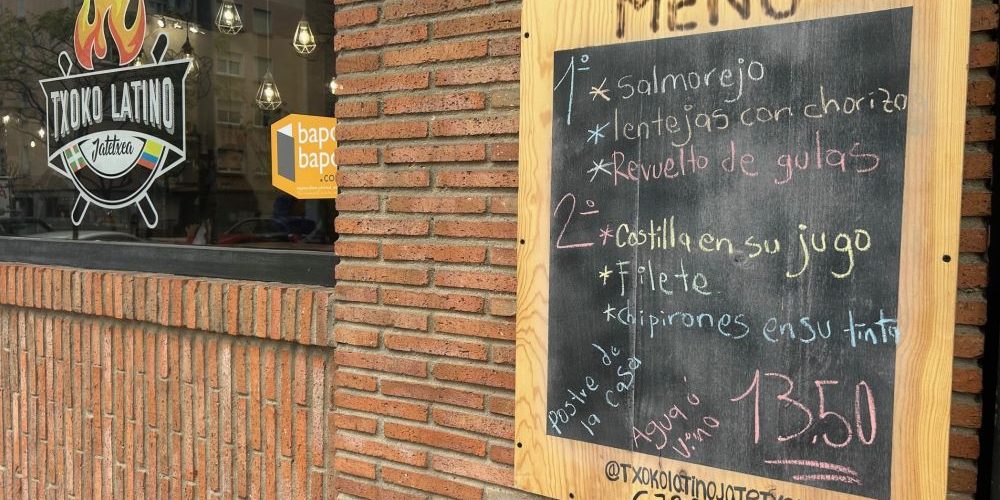 TXOKO LATINO
Jatetxea
bapo
bapo
.co
MENÚ
1º
*Salmorejo
*lentejas con chorizo
*Revuelto de gulas
2º
*Costilla en su jugo
*Filete
*Chipirones en su tinta
Postre de
la casa
Agua ó
vino
13.50